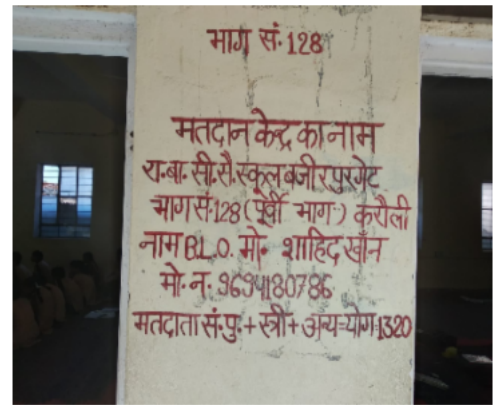 भाग सं. 128
मतदान केन्द्र का नाम
रा. बा. सी. सै. स्कूल वजीरपुर गेट
भाग सं. 128 (पूर्वी भाग) करौली
नाम B.L.O. मो. शाहिद खाँन
मो. न. 9694180786
मतदाता सं. पु. + स्त्री + अन्य = योग 1320